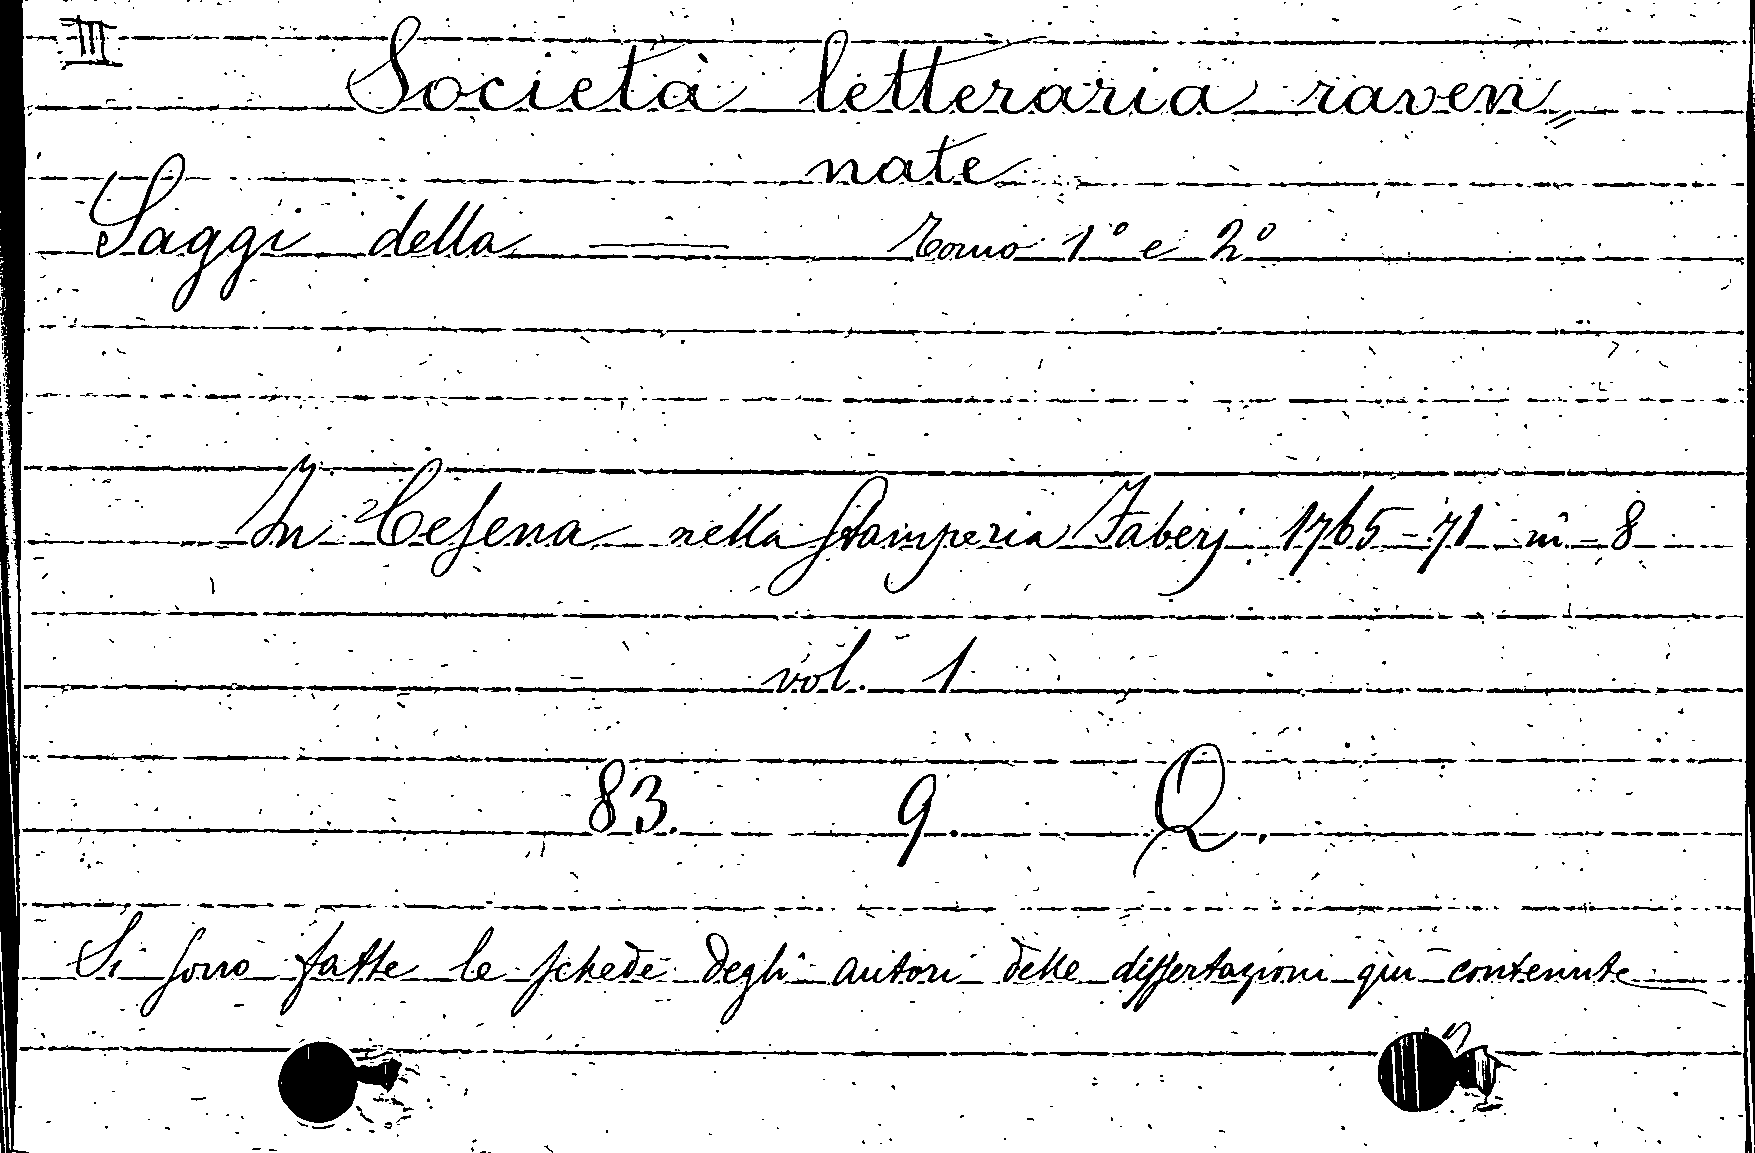 III
Società letteraria raven=
nate
Saggi della —— Tomo 1° e 2°
In Cesena nella Stamperia Faberj 1765-71 in-8
vol. 1
83. 9. Q.
Si sono fatte le schede degli autori delle dissertazioni qui contenute